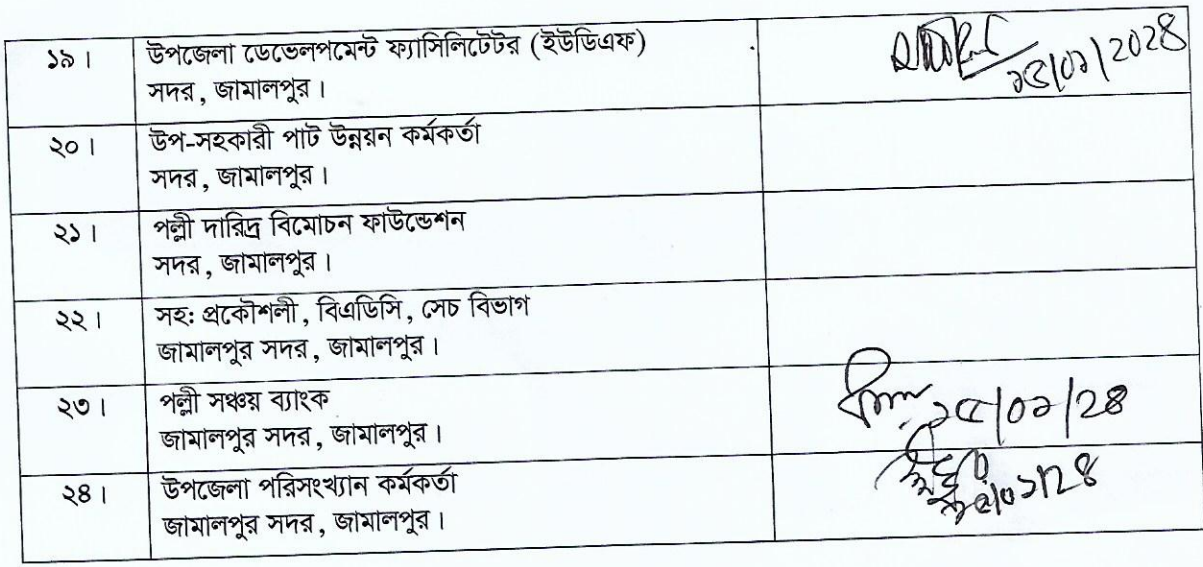 ১৯। উপজেলা ডেভেলপমেন্ট ফ্যাসিলিটেটর (ইউডিএফ)
সদর, জামালপুর।
২০। উপ-সহকারী পাট উন্নয়ন কর্মকর্তা
সদর, জামালপুর।
২১। পল্লী দারিদ্র বিমোচন ফাউন্ডেশন
সদর, জামালপুর।
২২। সহঃ প্রকৌশলী, বিএডিসি, সেচ বিভাগ
জামালপুর সদর, জামালপুর।
২৩। পল্লী সঞ্চয় ব্যাংক
জামালপুর সদর, জামালপুর।
২৪। উপজেলা পরিসংখ্যান কর্মকর্তা
জামালপুর সদর, জামালপুর।